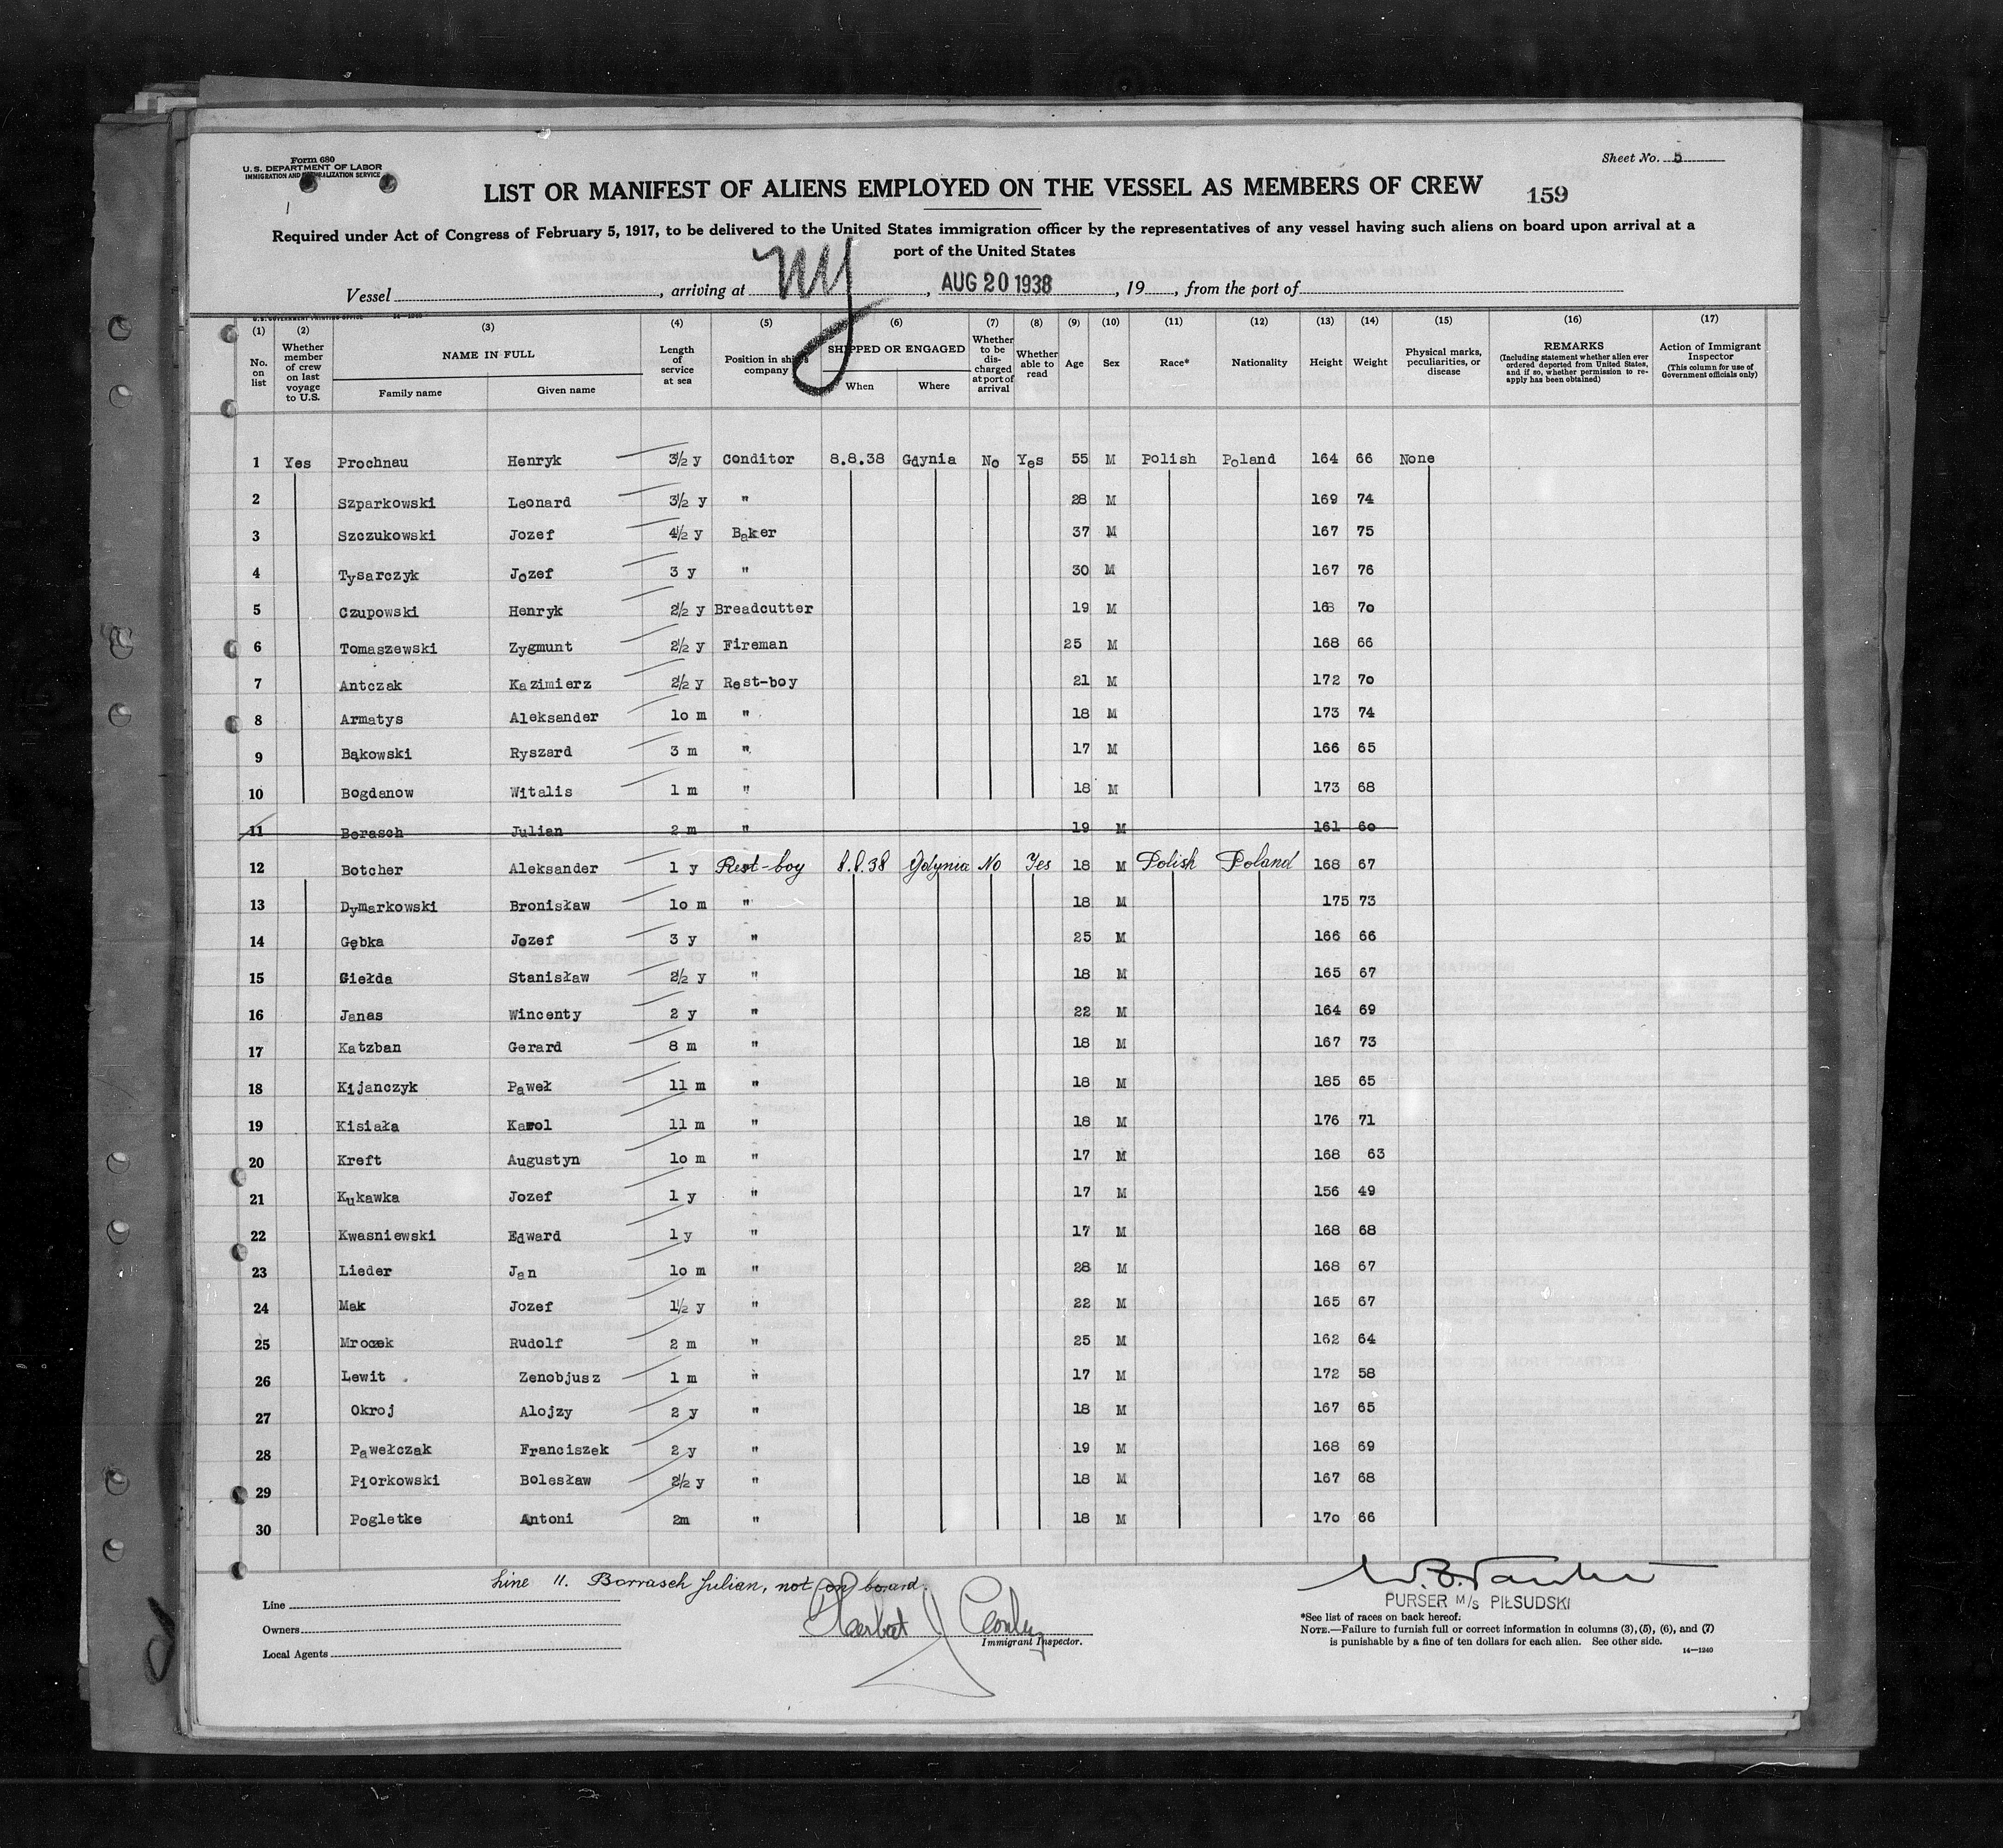 Form 680
U.S. DEPARTMENT OF LABOR
IMMIGRATION AND NATURALIZATION SERVICE
Sheet No. 5
LIST OR MANIFEST OF ALIENS EMPLOYED ON THE VESSEL AS MEMBERS OF CREW
159
Required under Act of Congress of February 5, 1917, to be delivered to the United States immigration officer by the representatives of any vessel having such aliens on board upon arrival at a
port of the United States
Vessel , arriving at NY , AUG 20 1938 , 19 , from the port of
U.S. GOVERNMENT PRINTING OFFICE 14—1240
(1) (2) (3) (4) (5) (6) (7) (8) (9) (10) (11) (12) (13) (14) (15) (16) (17)
No. on list
Whether member of crew on last voyage to U.S.
NAME IN FULL
Family name
Given name
Length of service at sea
Position in ship's company
SHIPPED OR ENGAGED
When
Where
Whether to be discharged at port of arrival
Whether able to read
Age
Sex
Race*
Nationality
Height
Weight
Physical marks, peculiarities, or disease
REMARKS
(Including statement whether alien ever ordered deported from United States, and if so, whether permission to re-apply has been obtained)
Action of Immigrant Inspector
(This column for use of Government officials only)
1 Yes Prochnau Henryk 3½ y Conditor 8.8.38 Gdynia No Yes 55 M Polish Poland 164 66 None
2 Szparkowski Leonard 3½ y " 28 M 169 74
3 Szczukowski Jozef 4½ y Baker 37 M 167 75
4 Tysarczyk Jozef 3 y " 30 M 167 76
5 Czupowski Henryk 2½ y Breadcutter 19 M 168 70
6 Tomaszewski Zygmunt 2½ y Fireman 25 M 168 66
7 Antczak Kazimierz 2½ y Rest-boy 21 M 172 70
8 Armatys Aleksander 10 m " 18 M 173 74
9 Bąkowski Ryszard 3 m " 17 M 166 65
10 Bogdanow Witalis 1 m " 18 M 173 68
11 Borasch Julian 2 m " 19 M 161 60
12 Botcher Aleksander 1 y Rest-boy 8.8.38 Gdynia No Yes 18 M Polish Poland 168 67
13 Dymarkowski Bronisław 10 m " 18 M 175 73
14 Gębka Jozef 3 y " 25 M 166 66
15 Giełda Stanisław 2½ y " 18 M 165 67
16 Janas Wincenty 2 y " 22 M 164 69
17 Katzban Gerard 8 m " 18 M 167 73
18 Kijanczyk Paweł 11 m " 18 M 185 65
19 Kisiała Karol 11 m " 18 M 176 71
20 Kreft Augustyn 10 m " 17 M 168 63
21 Kukawka Jozef 1 y " 17 M 156 49
22 Kwasniewski Edward 1 y " 17 M 168 68
23 Lieder Jan 10 m " 28 M 168 67
24 Mak Jozef 1½ y " 22 M 165 67
25 Mrozek Rudolf 2 m " 25 M 162 64
26 Lewit Zenobjusz 1 m " 17 M 172 58
27 Okroj Alojzy 2 y " 18 M 167 65
28 Pawełczak Franciszek 2 y " 19 M 168 69
29 Piorkowski Bolesław 2½ y " 18 M 167 68
30 Pogletke Antoni 2m " 18 M 170 66
Line 11. Borrasch Julian, not on board.
Line
Owners
Local Agents
Herbert J Conley
Immigrant Inspector.
PURSER M/s PIŁSUDSKI
*See list of races on back hereof.
NOTE.—Failure to furnish full or correct information in columns (3), (5), (6), and (7)
is punishable by a fine of ten dollars for each alien. See other side.
14—1240